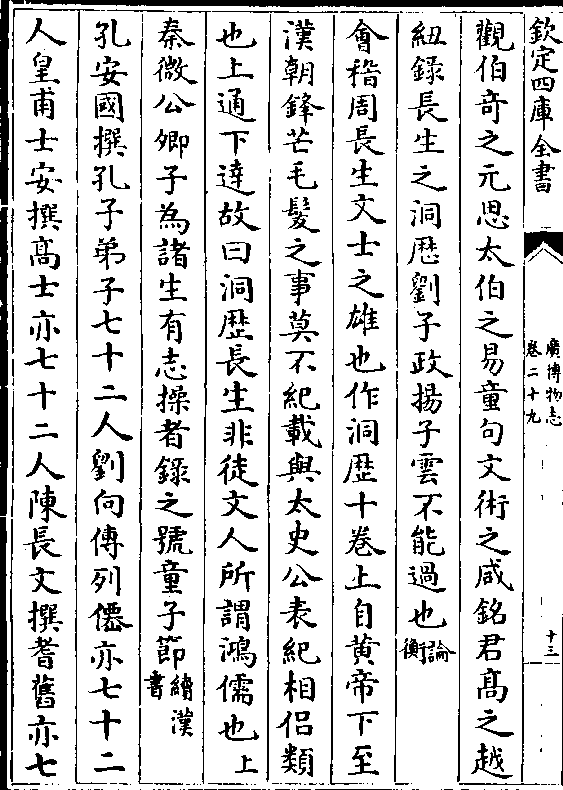 欽定四庫全書
廣博物志
卷二十九
十三
觀伯奇之元思太伯之易童句文術之咸銘君髙之越
紐錄長生之洞歴劉子政揚子雲不能過也論衡
㑹稽周長生文士之雄也作洞歴十卷上自黄帝下至
漢朝鋒芒毛髮之事莫不紀載與太史公表紀相侣類
也上通下達故曰洞歴長生非徒文人所謂鴻儒也上
秦微公卿子為諸生有志操者錄之號童子節續漢書
孔安國撰孔子弟子七十二人劉向傳列僊亦七十二
人皇甫士安撰髙士亦七十二人陳長文撰耆舊亦七